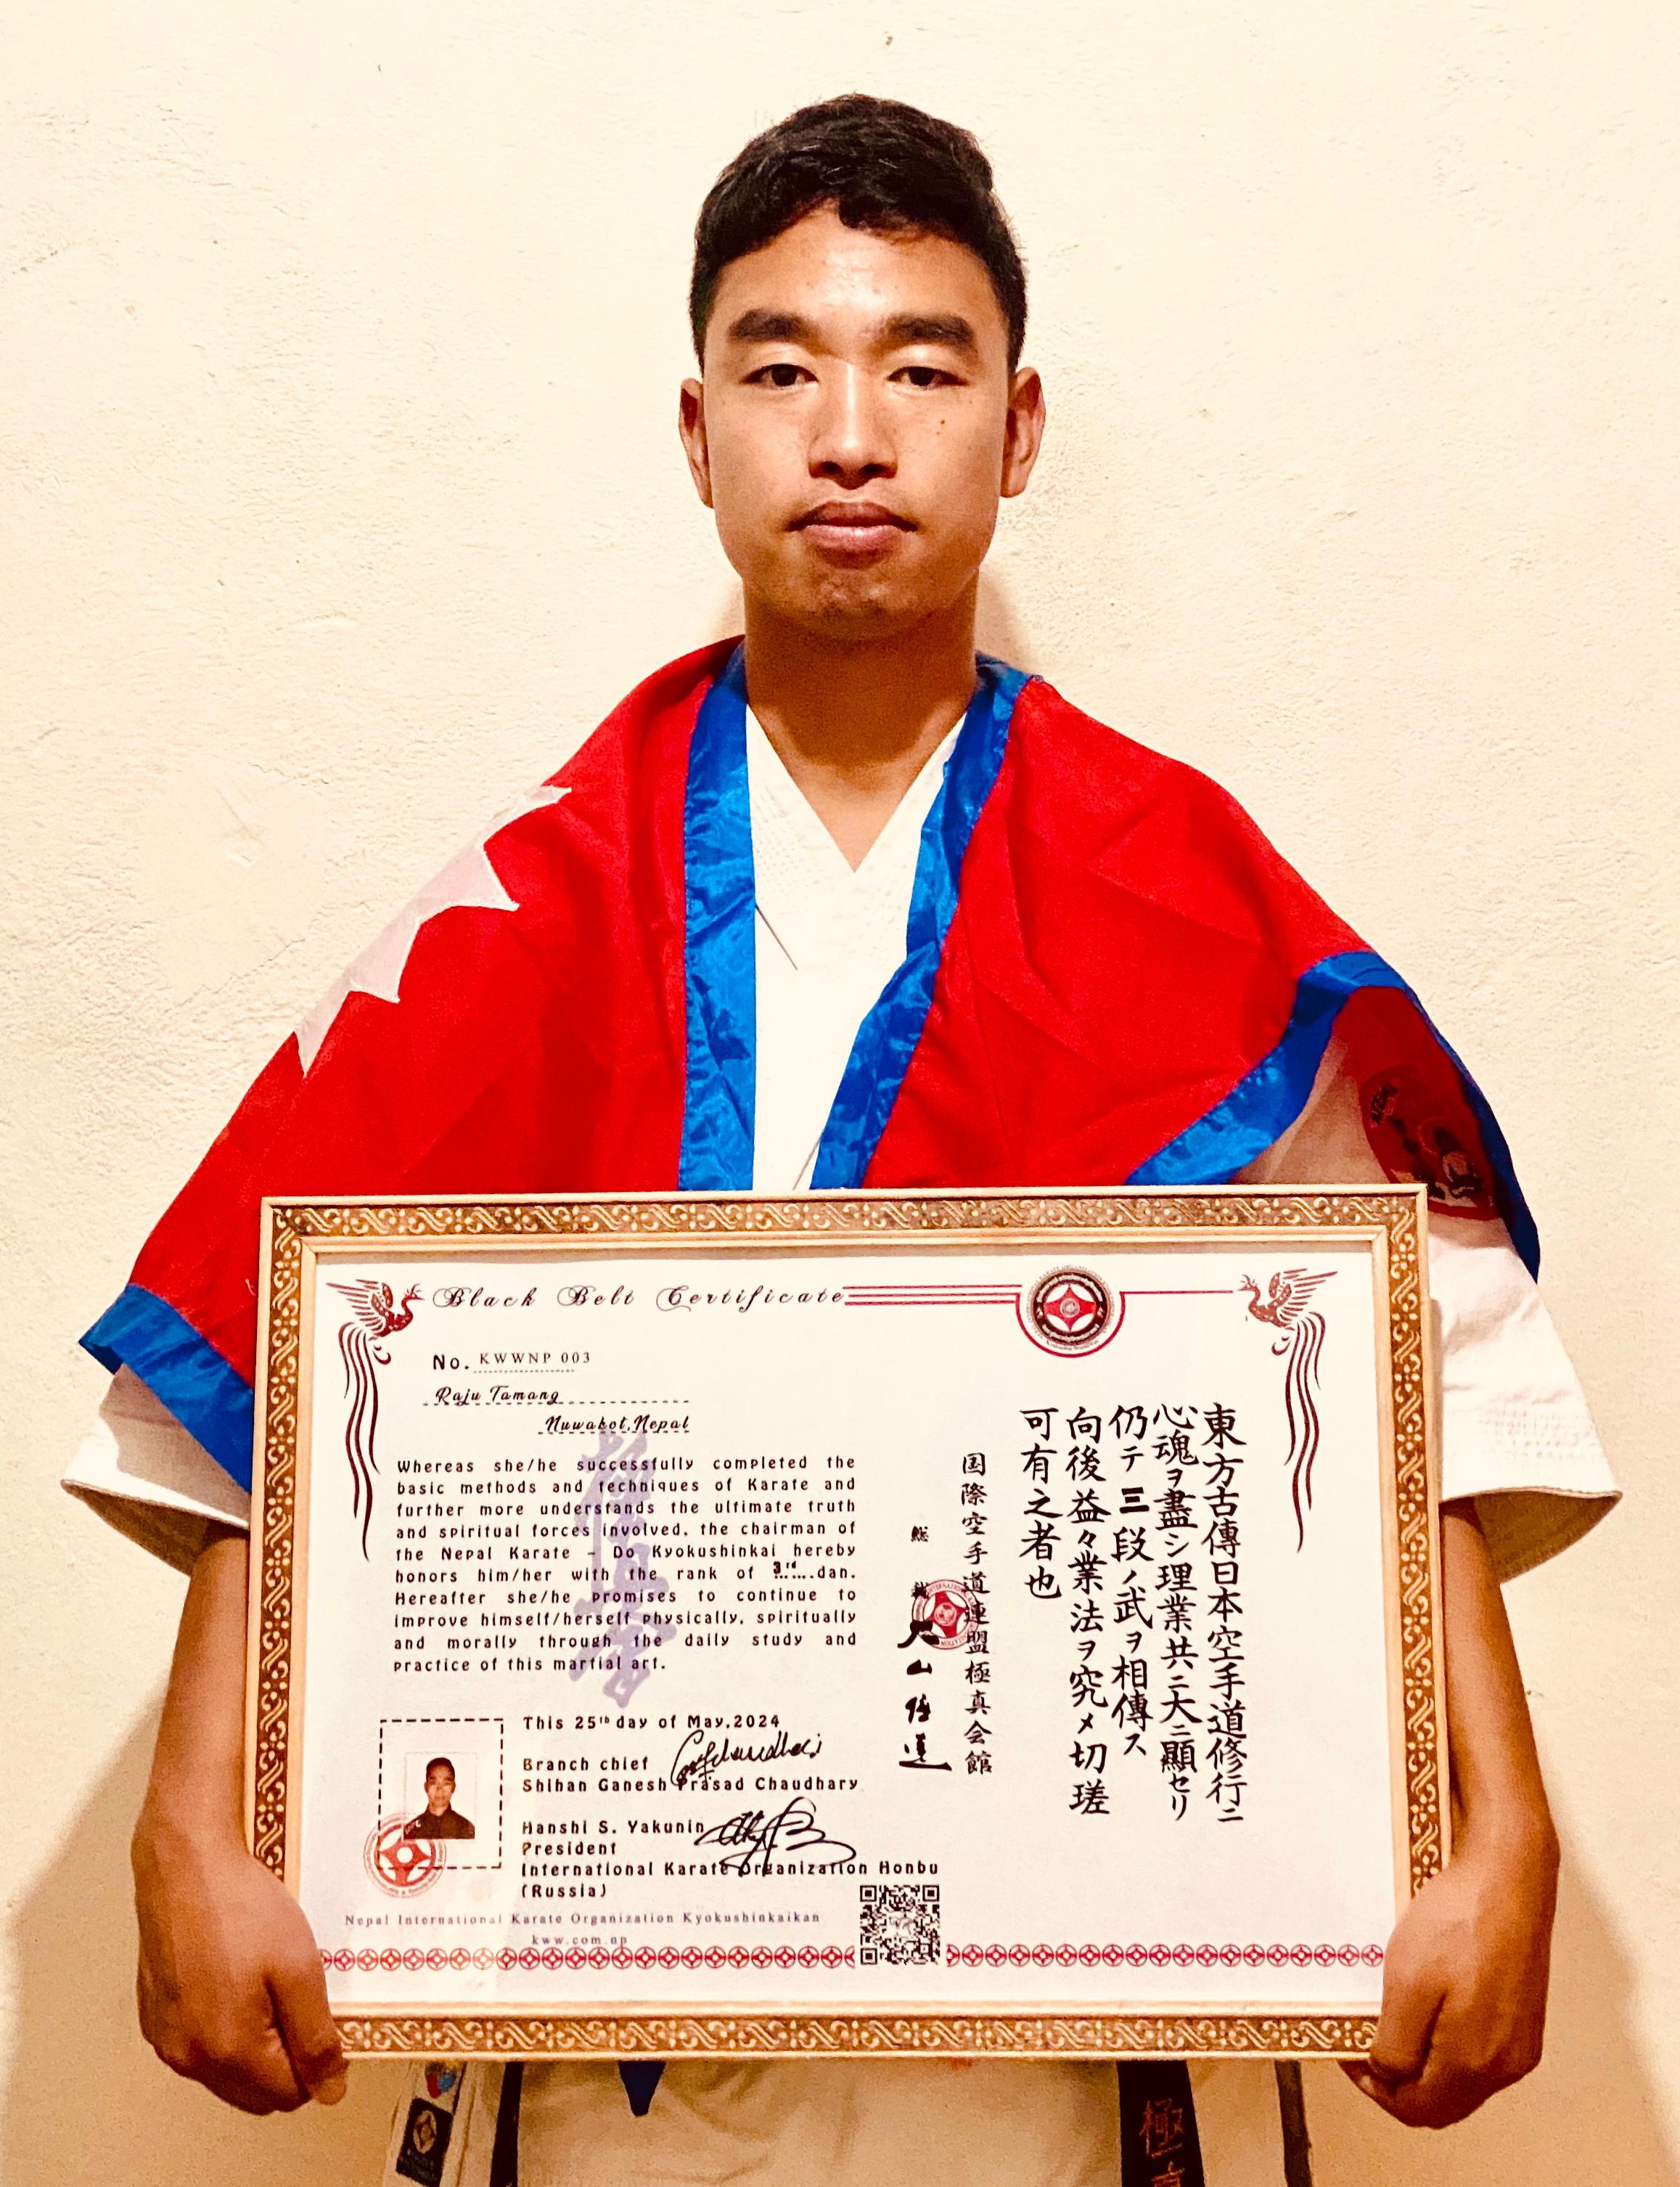 Black Belt Certificate
No. KWWNP 003
Raju Tamang
Nuwakot,Nepal
Whereas she/he successfully completed the
basic methods and techniques of Karate and
further more understands the ultimate truth
and spiritual forces involved, the chairman of
the Nepal Karate - Do Kyokushinkai hereby
honors him/her with the rank of 3rd dan.
Hereafter she/he promises to continue to
improve himself/herself physically, spiritually
and morally through the daily study and
practice of this martial art.
This 25th day of May,2024
Branch chief
Shihan Ganesh Prasad Chaudhary
Hanshi S. Yakunin
President
International Karate Organization Honbu
(Russia)
Nepal International Karate Organization Kyokushinkaikan
kww.com.np
東方古傳日本空手道修行ニ
心魂ヲ盡シ理業共ニ大ニ顯セリ
仍テ三段ノ武ヲ相傳ス
向後益々業法ヲ究メ切瑳
可有之者也
国際空手道連盟極真会館
大山倍達
極真